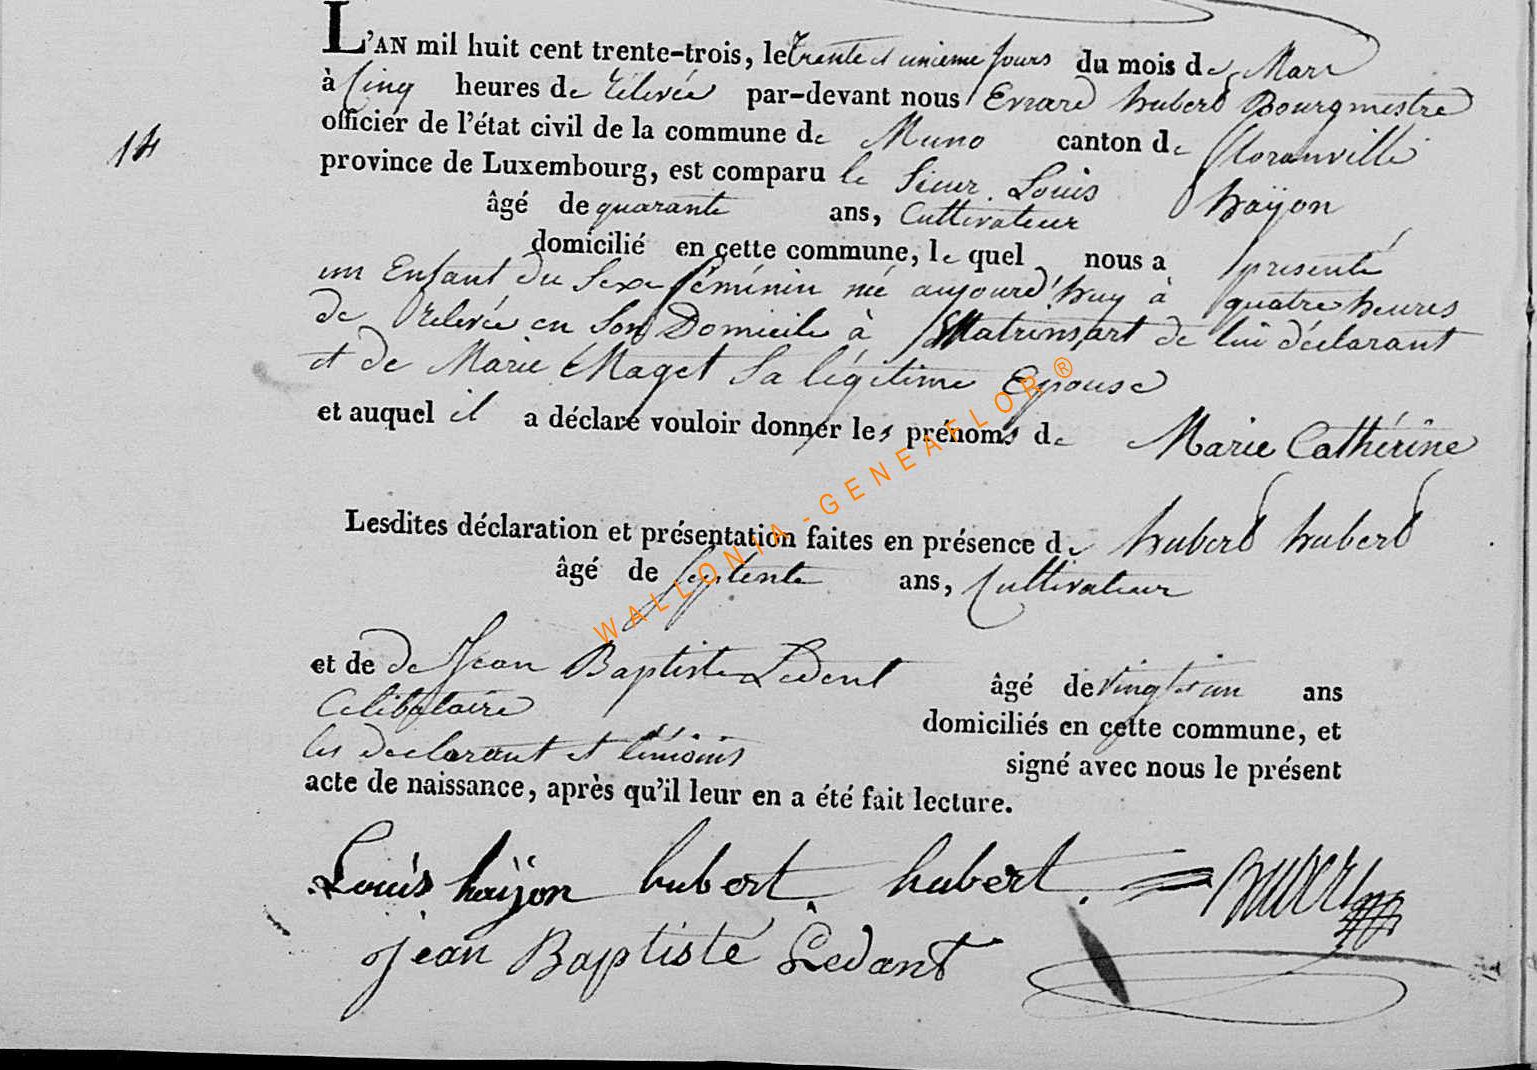 L'AN mil huit cent trente-trois, le trente et unieme jours du mois de Mars
à Cinq heures de rélevée par-devant nous Evrard hubert Bourgmestre
officier de l'état civil de la commune de Muno canton de floranville
14
province de Luxembourg, est comparu le Sieur Louis hayon
âgé de quarante ans, Cultivateur
domicilié en cette commune, le quel nous a presenté
un Enfant du Sexe féminin né aujourd'huy à quatre heures
de Relevée en Son Domicile à Watrinsart de lui déclarant
et de Marie Maget Sa légitime Epouse
et auquel il a déclaré vouloir donner les prénoms de Marie Cathérine
Lesdites déclaration et présentation faites en présence de hubert hubert
âgé de septente ans, Cultivateur
et de de Jean Baptiste Ledent âgé de vingt et un ans
Celibataire
domiciliés en cette commune, et
les declarant et témoins signé avec nous le présent
acte de naissance, après qu'il leur en a été fait lecture.
Louis haÿon hubert hubert.
Jean Baptiste Ledant
WALLONIA-GENEAFLOR®